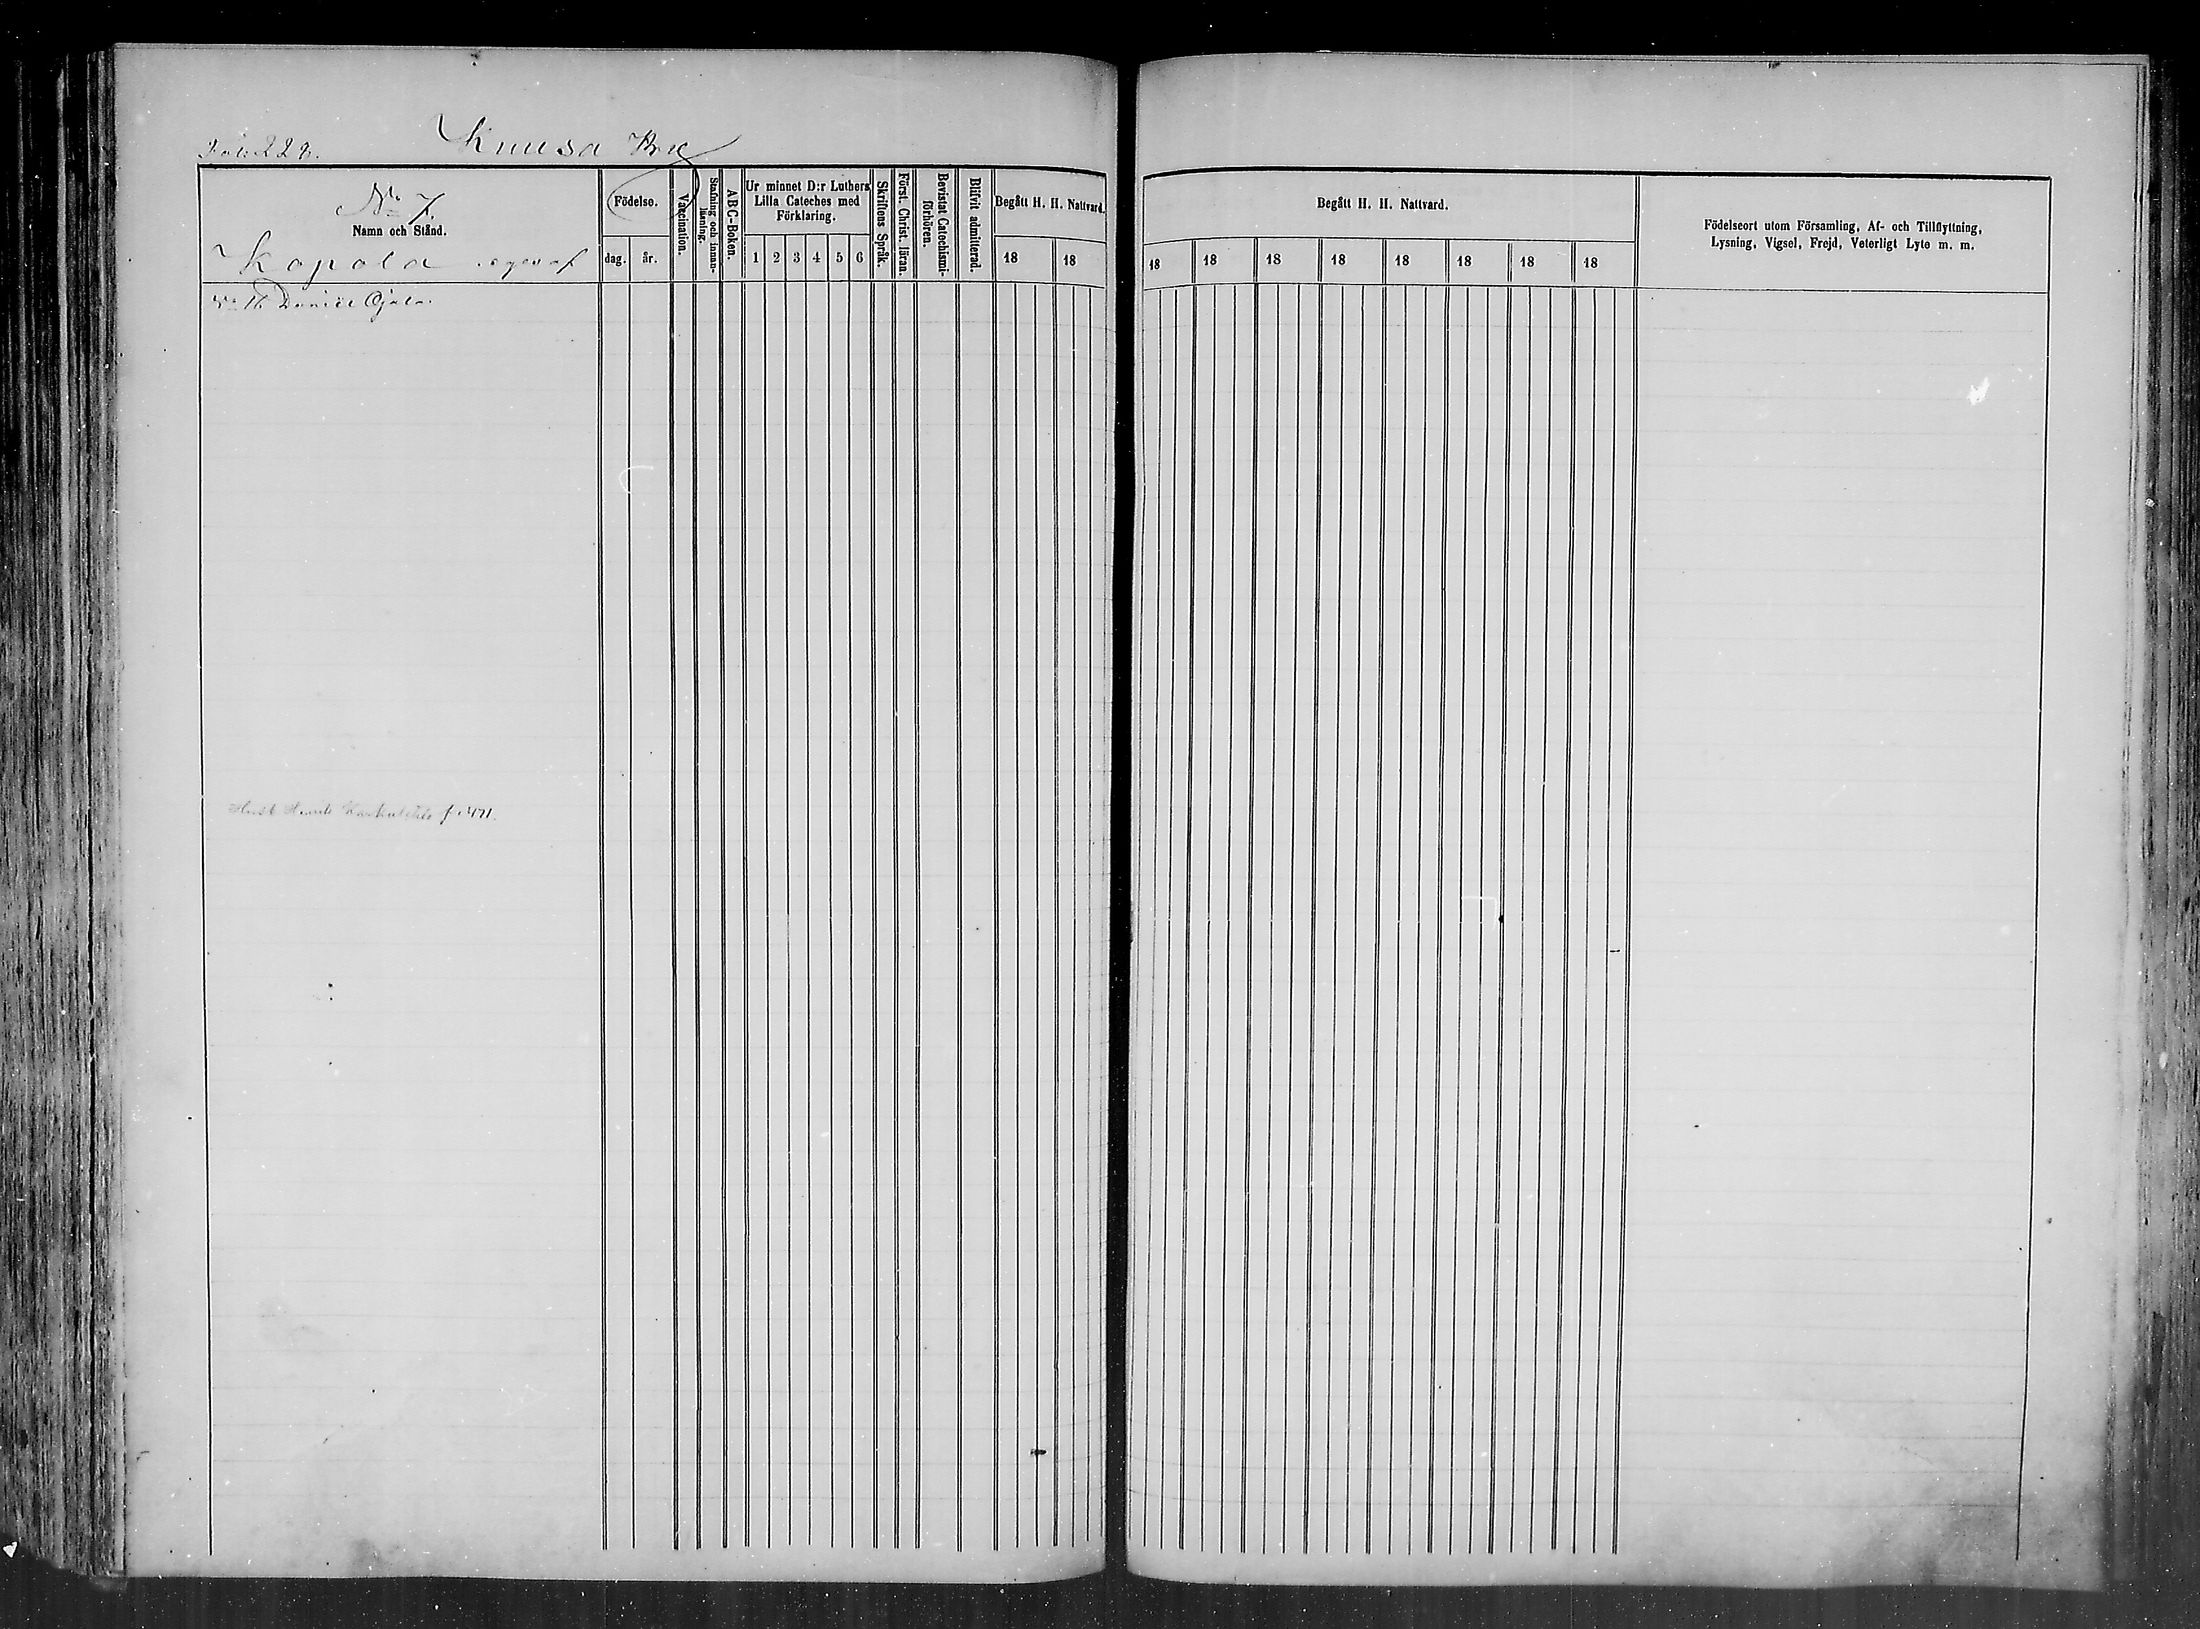 Fol: 228.
Kuusa By
No 7.
Namn och Stånd.
Kopola äges af
No 16 Daniel Ojala.
Födelse.
dag. år.
Vaccination.
Stafning och innan-
läsning.
ABC-Boken.
Ur minnet D:r Luthers
Lilla Cateches med
Förklaring.
1 2 3 4 5 6
Skriftens Språk.
Först. Christ. läran.
Bevistat Catechismi-
förhören.
Blifvit admitterad.
Begått H. H. Nattvard.
18 18
Begått H. H. Nattvard.
18 18 18 18 18 18 18 18
Födelseort utom Församling, Af- och Tillflyttning,
Lysning, Vigsel, Frejd, Veterligt Lyte m. m.
Henrik f. 471.